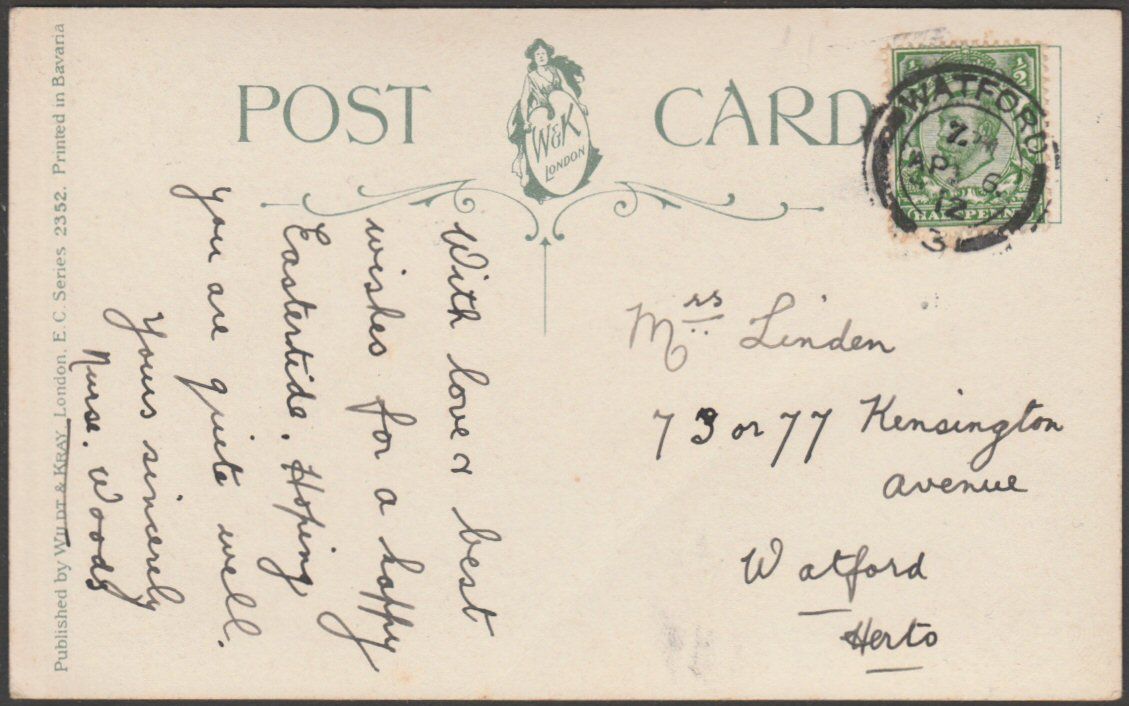 POST CARD
W&K
LONDON
½ ½
HALFPENNY
WATFORD
7.PM
AP 6
12
3
With love & best
wishes for a happy
Eastertide. Hoping
you are quite well.
Yours sincerely
Nurse. Woods
Mrs Linden
73 or 77 Kensington
avenue
Watford
Herts
Published by WILDT & KRAY, London. E. C. Series 2352. Printed in Bavaria